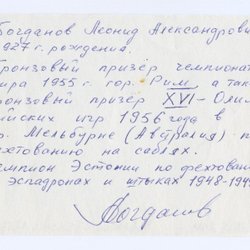 Богданов Леонид Александрови
927 г. рождения.
Бронзовый призёр чемпионат
ира 1955 г. гор. Рим, а так
ронзовый призёр XVI - Оли
ийских игр 1956 года в
р. Мельбурне (Австралия) п
ехтованию на саблях.
емпион Эстонии по фехтован
эспадронах и штыках 1948-194
Богданов